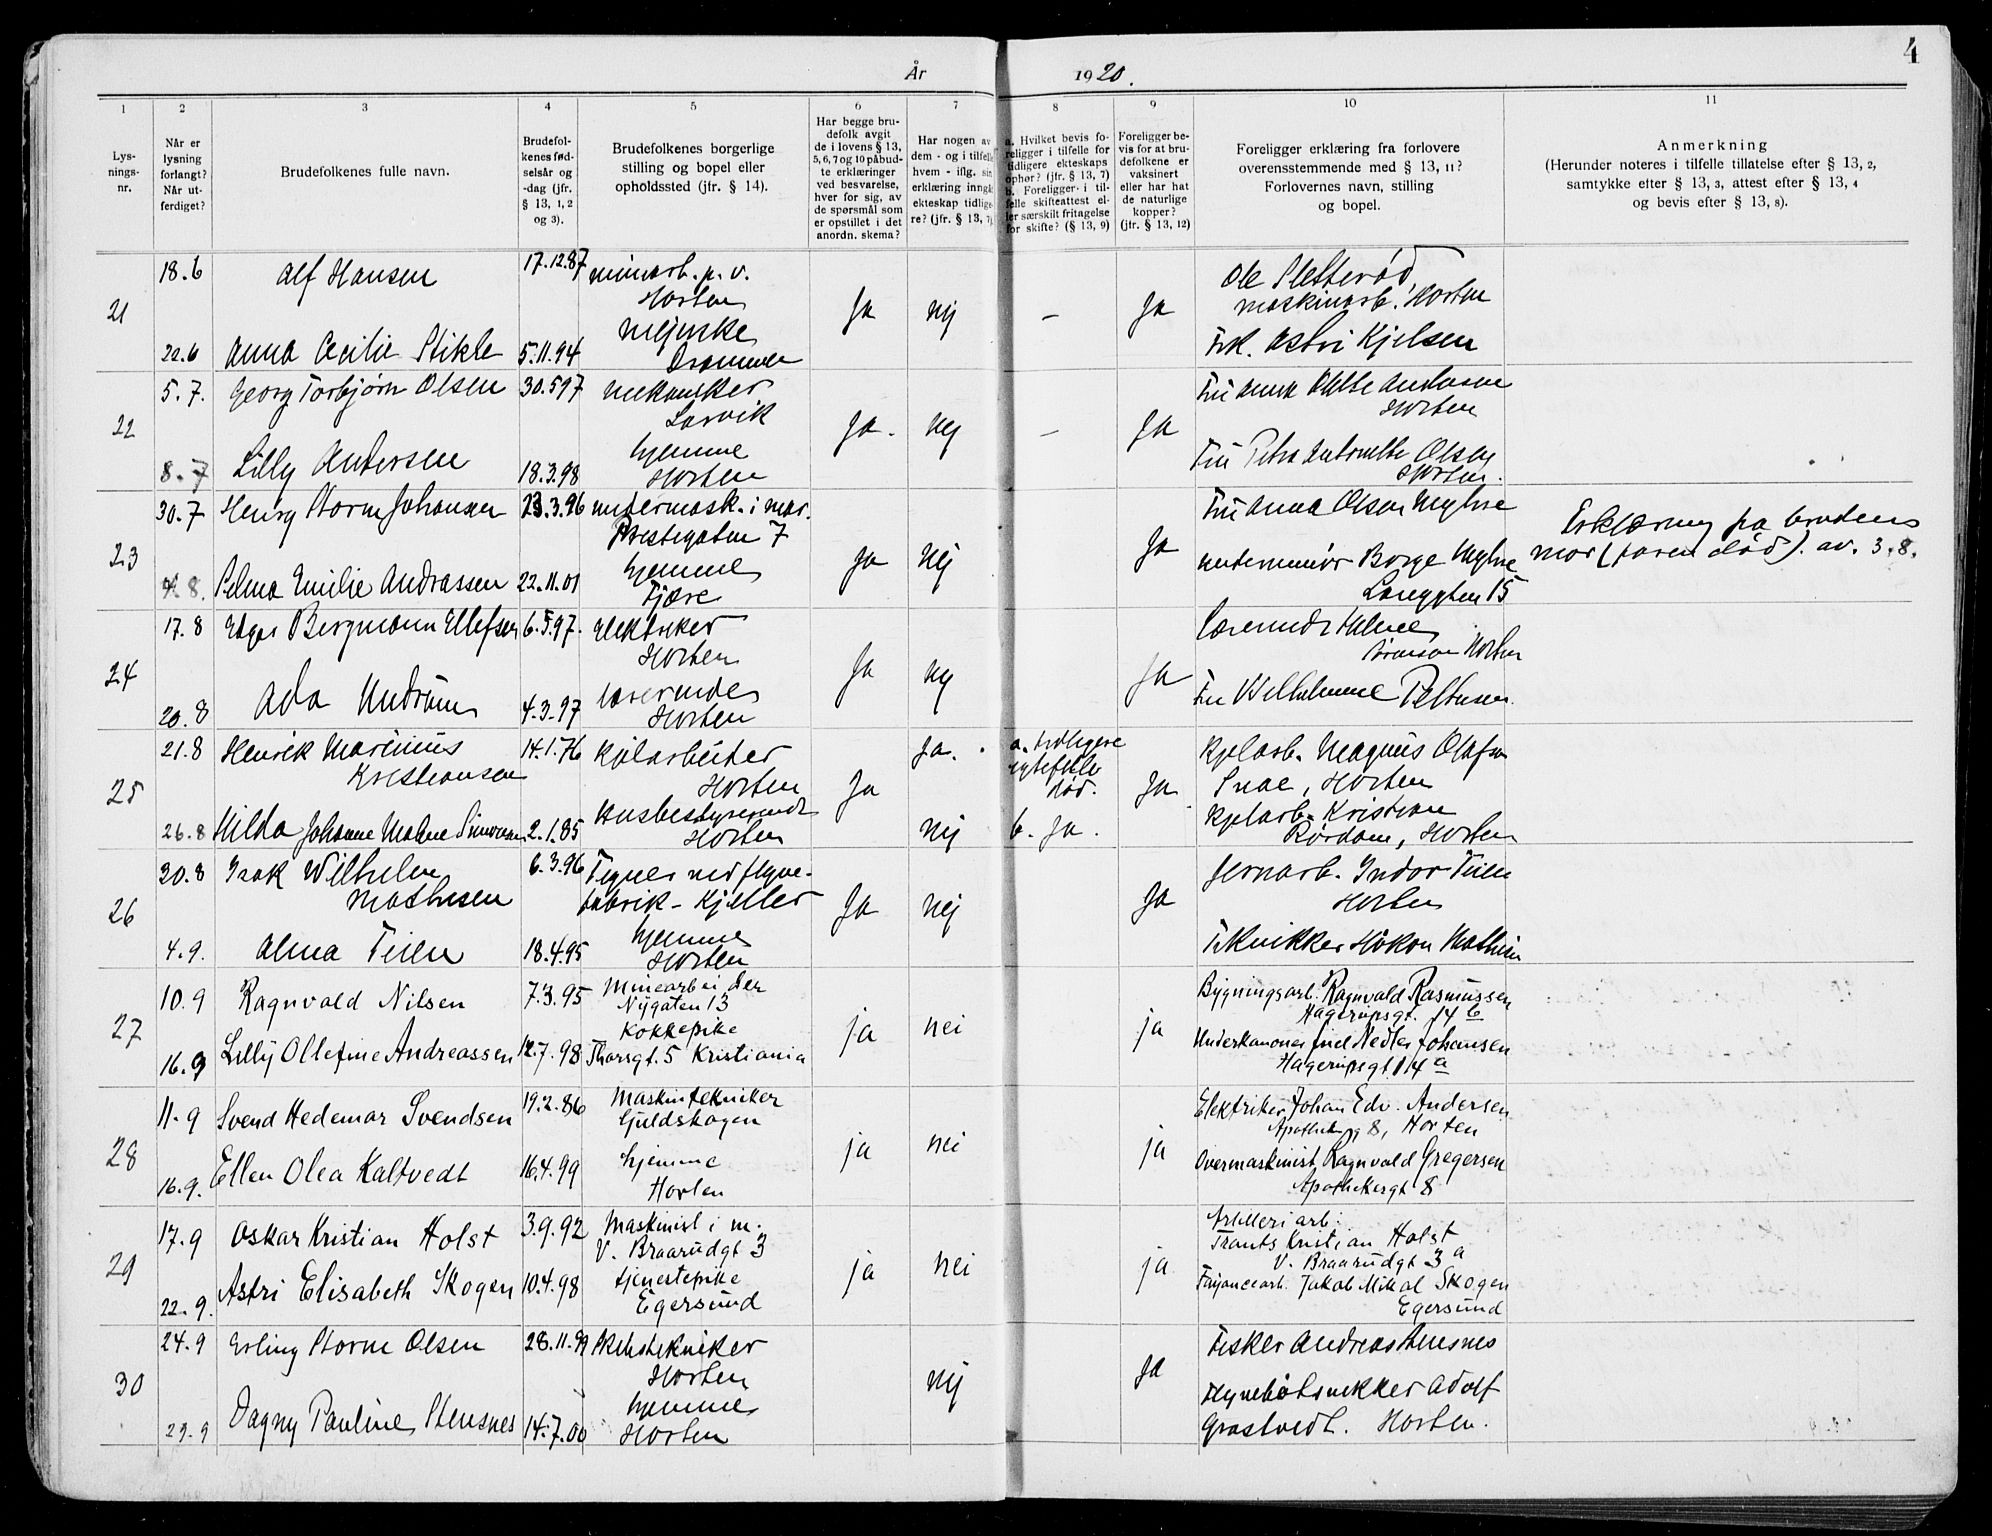 4
År 1920.
1 2 3 4 5 6 7 8 9 10 11
Lys-
nings-
nr.
Når er
lysning
forlangt?
Når ut-
ferdiget?
Brudefolkenes fulle navn.
Brudefol-
kenes fød-
selsår og
-dag (jfr.
§ 13, 1, 2
og 3).
Brudefolkenes borgerlige
stilling og bopel eller
opholdssted (jfr. § 14).
Har begge bru-
defolk avgit
de i lovens § 13,
5, 6, 7 og 10 påbud-
te erklæringer
ved besvarelse,
hver for sig, av
de spørsmål som
er opstillet i det
anordn. skema?
Har nogen av
dem - og i tilfelle
hvem - iflg. sin
erklæring inngått
ekteskap tidlige-
re? (jfr. § 13, 7)
a. Hvilket bevis fo-
religger i tilfelle for
tidligere ekteskaps
ophør? (jfr. § 13, 7)
b. Foreligger i til-
felle skifteattest el-
ler særskilt fritagelse
for skifte? (§ 13, 9)
Foreligger be-
vis for at bru-
defolkene er
vaksinert
eller har hat
de naturlige
kopper?
(jfr. § 13, 12)
Foreligger erklæring fra forlovere
overensstemmende med § 13, 11?
Forlovernes navn, stilling
og bopel.
Anmerkning
(Herunder noteres i tilfelle tillatelse efter § 13, 2,
samtykke efter § 13, 3, attest efter § 13, 4
og bevis efter § 13, 8).
18.6 Alf Hansen 17.12.87 minearb. m. v. Ole Sletterød,
Horten maskinarb. Horten
21 Ja nej – Ja
mejerske Frk. Astri Kjelsen
22.6 Anna Cecilie Stikle 5.11.94 Drammen
5.7. Georg Torbjørn Olsen 30.5 97 mekaniker Fru Anna Andersen
Larvik Horten
22 Ja. nej – Ja
hjemme Fru Petra Olsen
8.7 Lilly Andersen 18.3.98 Horten Horten.
30.7 Henry Storm Johansen 23.3.96 undermask. i mar. Fru Anna Olsen Myhre Erklæring fra brudens
Prestegaten 7 mor (faren død). av. 3.8.
23 Ja nej Ja
hjemme underminør Borge Myhre
4.8. Selma Emilie Andreassen 22.11.01 Fjære 15
17.8 Edgar Bergmann Ellefsen 6.5.97. elektriker Lærerinde
Horten Horten
24 Ja nej Ja
lærerinde Fru Wilhelmine Pettersen.
20.8 Ada Undrum 4.3.97 Horten
21.8 Henrik Marinius 14.1.76 kjelarbeider Ja. a. tidligere kjelarb. Magnus Olafsen
Kristiansen Horten ektefelle død. Snae, Horten
25 Ja Ja
Husbestyrerinde kjelarb. Kristian
26.8 Hilda Johanne Malene Simonsen 2.1.85 Horten nej b. Ja. Rørdam, Horten
30.8 Isak Wilhelm 6.3.96 Tegner ved flyve- Jernarb. Indor Teien
Mathisen fabrik - Kjeller Horten
26 Ja nej Ja
hjemme Tekniker Håkon Mathisen
4.9. Alma Teien 18.4.95 Horten
10.9 Ragnvald Nilsen 7.3.95 Minearbeider Bygningsarb. Ragnvald Rasmussen
Nygaten 13 Hagerupsgt. 14 b
27 ja nei ja
Kokkepike Underkanoner Nedler Johansen
16.9 Lilly Ollefine Andreassen 12.7.98 Thorsgt. 5 Kristiania Hagerupsgt. 14 a
11.9 Svend Hedemar Svendsen 19.2.86 Maskintekniker Elektriker Johan Edv. Andersen
Gjuldskogen 8, Horten
28 ja nei ja
hjemme Overmaskinist Ragnvald Gregersen
16.9. Ellen Olea Kaltvedt 16.4.99 Horten Apothekergt 8
17.9 Oskar Kristian Holst 3.9.92 Maskinist i m. Artilleriarb.
V. Braarudgt 3 Frants Kristian Holst
V. Braarudgt 3 a
29 ja nei ja
tjenestepike Fajancearb. Jakob Mikal Skogen
22.9. Astri Elisabeth Skogen 10.4.98 Egersund Egersund
24.9 Erling Storm Olsen 28.11.99 Skibstekniker Fisker Andreas Stensnes
Horten
30 nej Ja
hjemme Flyvebåtsnekker Adolf
29.9 Dagny Pauline Stensnes 14.7.00 Horten Grostvedt. Horten.